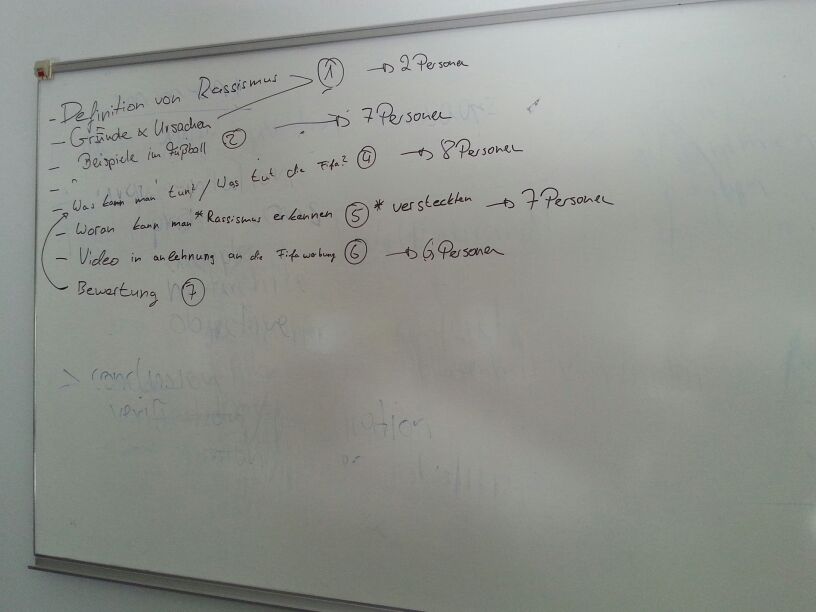 - Definition von Rassismus ① → 2 Personen
- Gründe & Ursachen
- Beispiele im Fußball ② → 7 Personen
- "
- Was kann man tun? / Was tut die Fifa? ④ → 8 Personen
- Woran kann man * Rassismus erkennen ⑤ * versteckten → 7 Personen
- Video in anlehnung an die Fifawerbung ⑥ → 6 Personen
- Bewertung ⑦